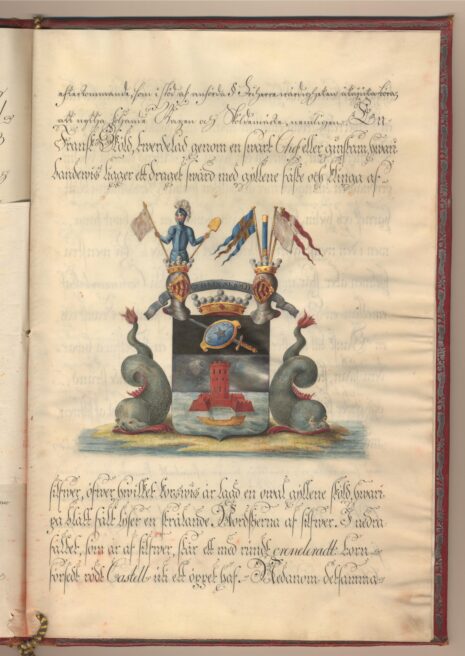 efterkommande, som i stöd af anförda § Friherre värdigheten åtnjuta böra,
att nyttja följande Wapen och Sköldemärke, nemligen. En
Fransk Sköld, twerdelad genom en swart Chef eller ginstam, hwari
bandewis ligger ett draget swärd med gyllene fäste och klinga af
silfwer, öfwer hwilket korswis är lagd en owal gyllene sköld, hwari
på blått fält lyser en strålande Nordstjerna af silfwer. I nedra
fältet, som är af silfwer, står ett med rundt creneleradt torn
försedt rödt Castell uti ett öppet haf. Medanom detsamma